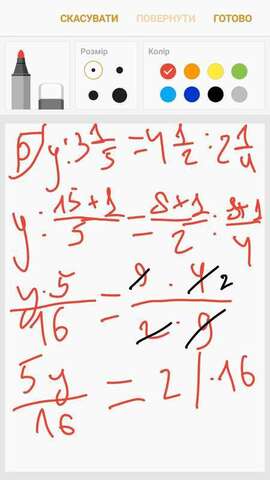 СКАСУВАТИ ПОВЕРНУТИ ГОТОВО
Розмір Колір
б) y : 3 1/5 = 4 1/2 : 2 1/4
y : 15+1/5 = 8+1/2 : 8+1/4
y·5/16 = 9·4 2/2·9
5y/16 = 2 |·16